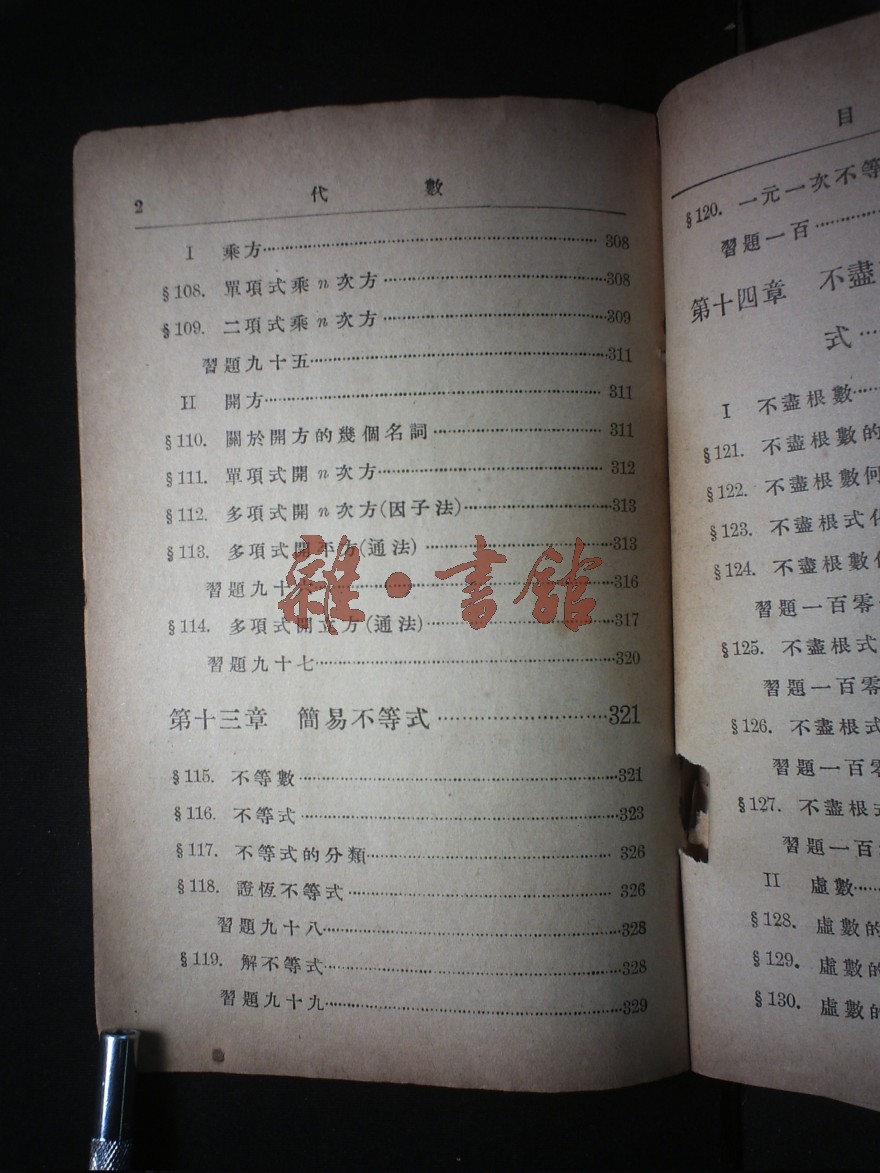 2 代數
I 乘方 308
§108. 單項式乘n次方 308
§109. 二項式乘n次方 309
習題九十五 311
II 開方 311
§110. 關於開方的幾個名詞 311
§111. 單項式開n次方 312
§112. 多項式開n次方(因子法) 313
§113. 多項式開平方(通法) 313
習題九十六 316
§114. 多項式開立方(通法) 317
習題九十七 320
第十三章 簡易不等式 321
§115. 不等數 321
§116. 不等式 323
§117. 不等式的分類 326
§118. 證恆不等式 326
習題九十八 328
§119. 解不等式 328
習題九十九 329
目
§120. 一元一次不等
習題一百
第十四章 不盡
式
I 不盡根數
§121. 不盡根數的
§122. 不盡根數何
§123. 不盡根式化
§124. 不盡根數化
習題一百零
§125. 不盡根式
習題一百零
§126. 不盡根式
習題一百零
§127. 不盡根式
習題一百
II 虛數
§128. 虛數的
§129. 虛數的
§130. 虛數的
雜·書館